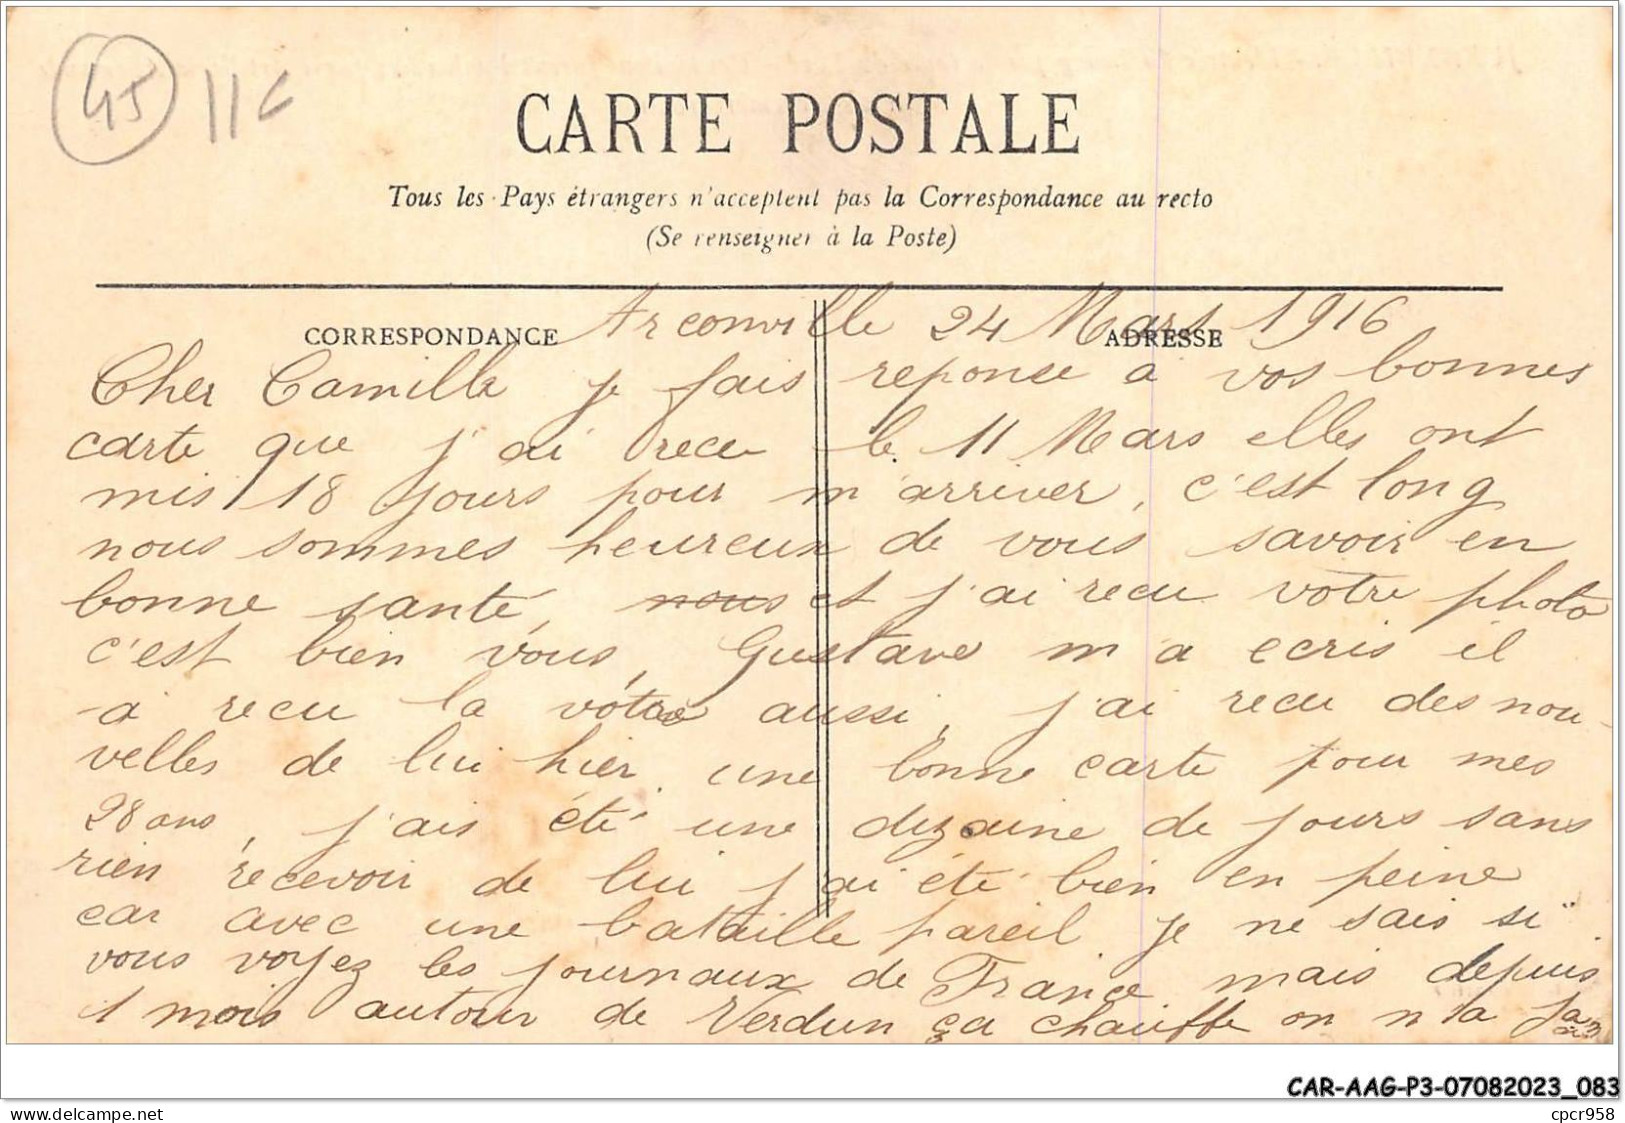 45 11 c
CARTE POSTALE
Tous les Pays étrangers n'acceptent pas la Correspondance au recto
(Se renseigner à la Poste)
CORRESPONDANCE
ADRESSE
Arconville 24 Mars 1916
Cher Camille je fais reponce a vos bonnes
carte que j'ai recu le 11 Mars elles ont
mis 18 jours pour m'arriver, c'est long
nous sommes heureux de vous savoir en
bonne santé, nous et j'ai recu votre photo
c'est bien vous, Gustave m'a ecris il
a recu la vôtre aussi, j'ai recu des nou-
velles de lui hier, une bonne carte pour mes
28 ans, j'ais été une dizaine de jours sans
rien recevoir de lui j'ai été bien en peine
car avec une bataille pareil je ne sais si
vous voyez les journaux de France mais depuis
1 mois autour de Verdun ça chauffe on n'a ja
CAR-AAG-P3-07082023_083
www.delcampe.net
cpcr958